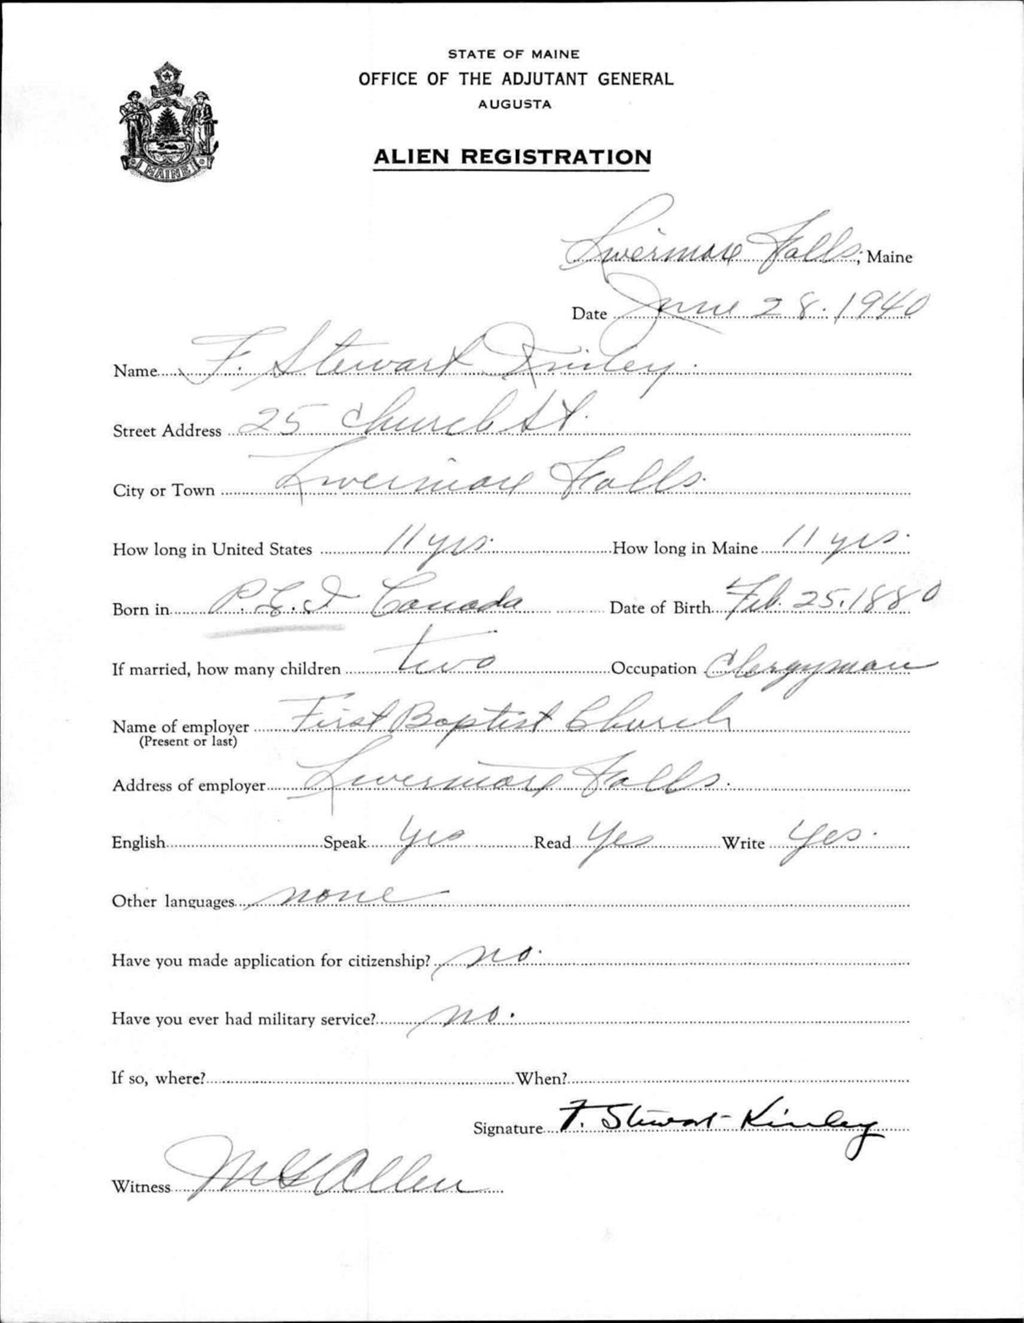 STATE OF MAINE
OFFICE OF THE ADJUTANT GENERAL
AUGUSTA
ALIEN REGISTRATION
MAINE
Livermore Falls, Maine
Date June 28. 1940
Name F. Stewart Kinley.
Street Address 25 Church St.
City or Town Livermore Falls.
How long in United States 11 yrs. How long in Maine 11 yrs.
Born in P.E.I Canada Date of Birth Feb. 25. 1880
If married, how many children two Occupation Clergyman
Name of employer First Baptist Church
(Present or last)
Address of employer Livermore Falls.
English Speak Yes Read Yes Write Yes.
Other languages none
Have you made application for citizenship? no.
Have you ever had military service? no.
If so, where? When?
Signature F. Stewart Kinley
Witness M G Allen